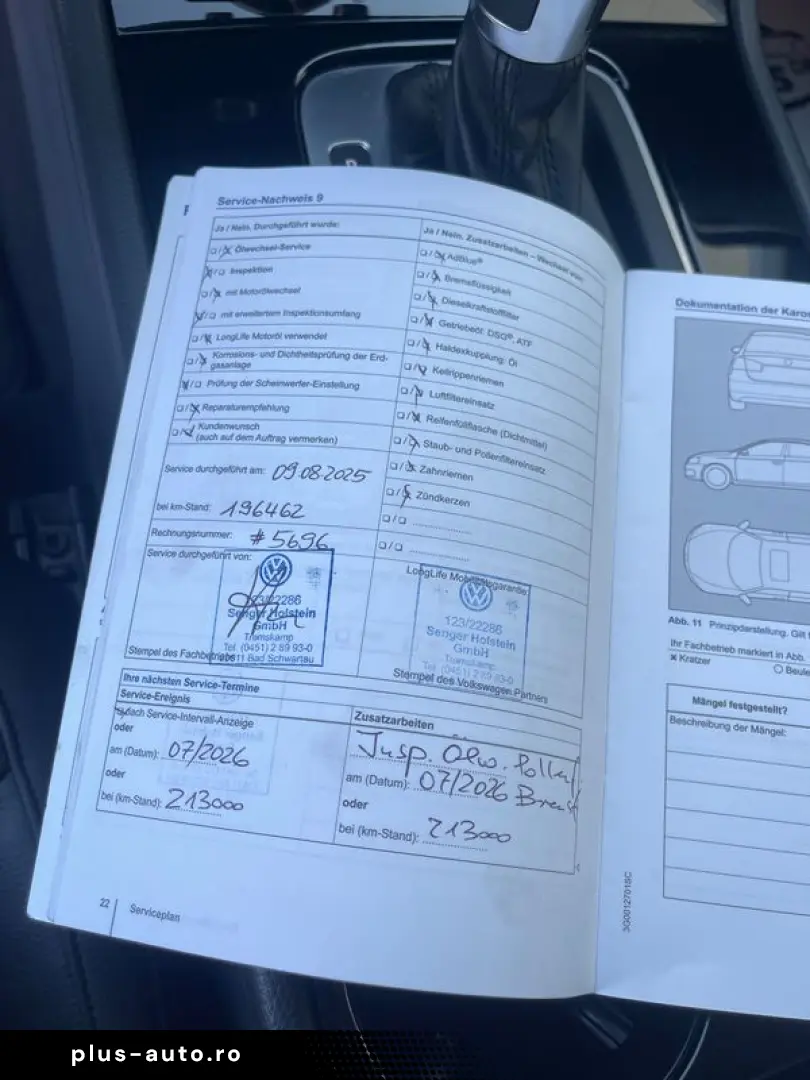 Service-Nachweis 9
Ja / Nein. Durchgeführt wurde:
Ölwechsel-Service
Inspektion
mit Motorölwechsel
mit erweitertem Inspektionsumfang
LongLife Motoröl verwendet
Korrosions- und Dichtheitsprüfung der Erd-
gasanlage
Prüfung der Scheinwerfer-Einstellung
Reparaturempfehlung
Kundenwunsch
(auch auf dem Auftrag vermerken)
Service durchgeführt am: 09.08.2025
bei km-Stand: 196462
Rechnungsnummer: #5696
Service durchgeführt von:
123/22286
Senger Holstein
GmbH
Tramskamp
Tel. (0451) 2 89 93-0
Bad Schwartau
Stempel des Fachbetriebs
Ja / Nein. Zusatzarbeiten – Wechsel von:
AdBlue®
Bremsflüssigkeit
Dieselkraftstofffilter
Getriebeöl: DSG®, ATF
Haldexkupplung: Öl
Keilrippenriemen
Luftfiltereinsatz
Reifenfüllflasche (Dichtmittel)
Staub- und Pollenfiltereinsatz
Zahnriemen
Zündkerzen
LongLife Mobilitätsgarantie:
123/22286
Senger Holstein
GmbH
Tramskamp
Tel. (0451) 2 89 93-0
Stempel des Volkswagen Partners
Ihre nächsten Service-Termine
Service-Ereignis
nach Service-Intervall-Anzeige
oder
am (Datum): 07/2026
oder
bei (km-Stand): 213000
Zusatzarbeiten
Insp. Ölw.
am (Datum): 07/2026
oder
bei (km-Stand): 213000
22
Serviceplan
Dokumentation der
Abb. 11 Prinzipdarstellung.
Ihr Fachbetrieb markiert in Abb.
Kratzer
Mängel festgestellt?
Beschreibung der Mängel:
3G0012701SC
plus-auto.ro